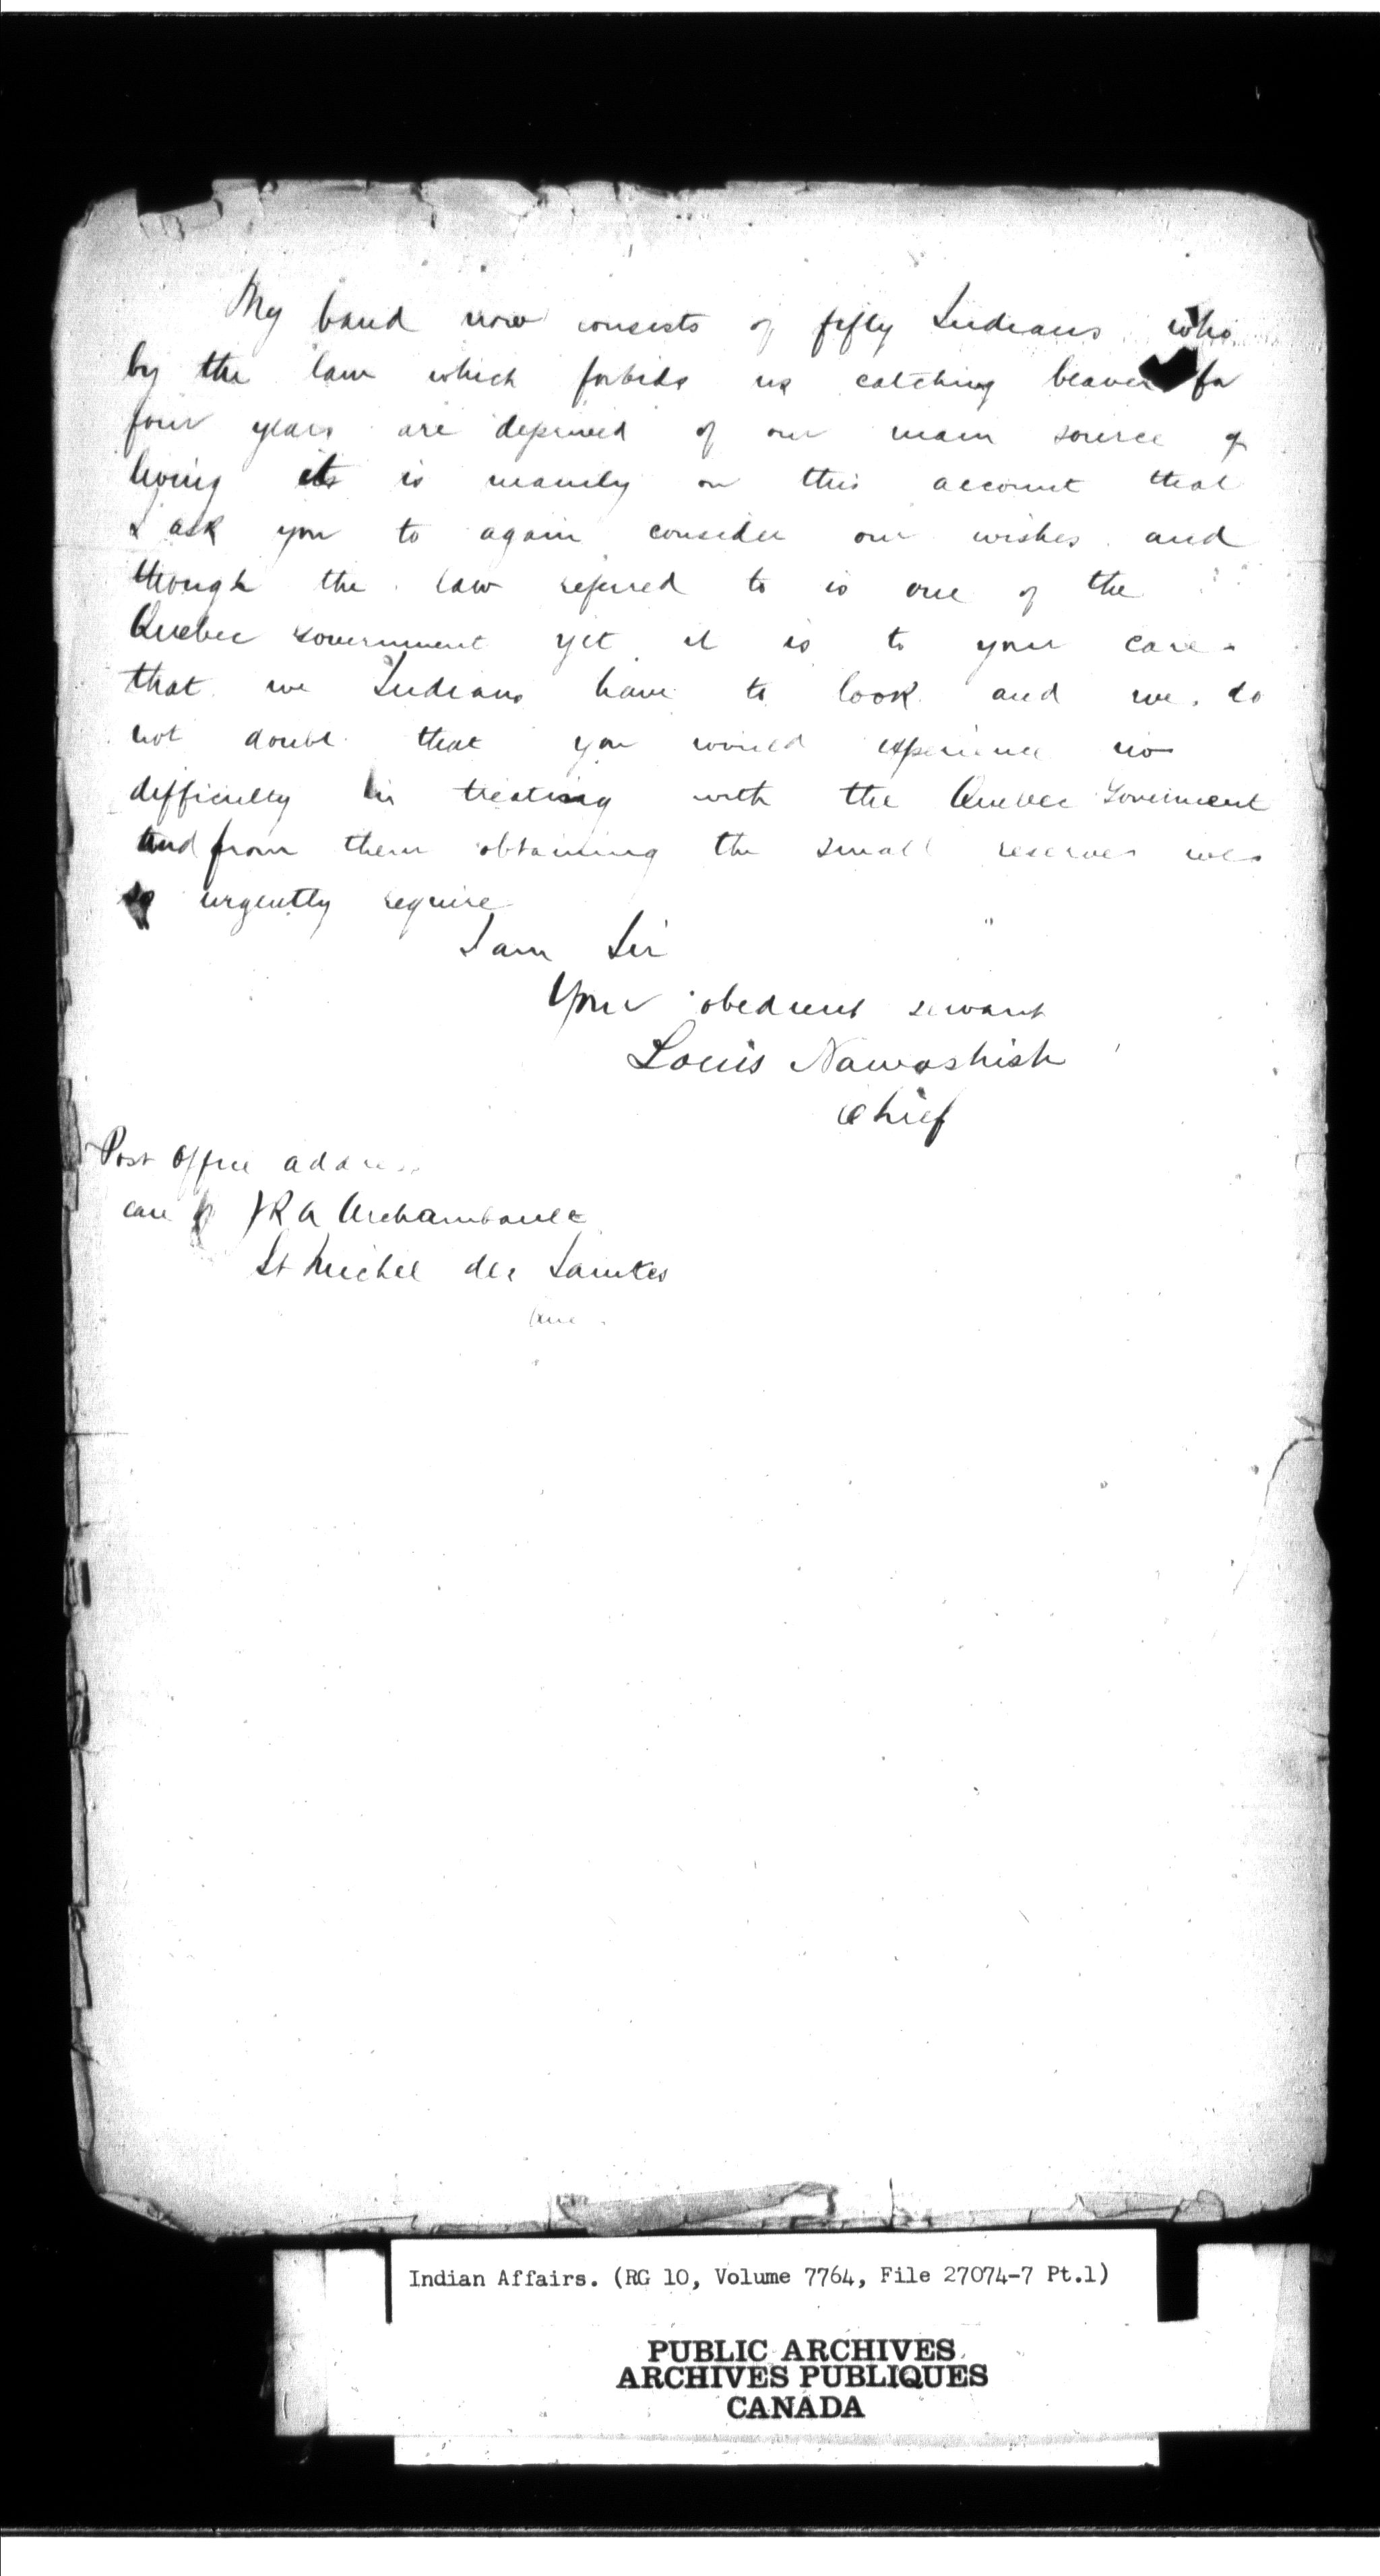 My band now consists of fifty Indians who
by the law which forbids us catching beaver for
four years are deprived of our main source of
living it is mainly on this account that
I ask you to again consider our wishes and
though the law referred to is one of the
Quebec Government yet it is to your care
that we Indians have to look and we do
not doubt that you would experience no
difficulty in treating with the Quebec Government
and from them obtaining the small reserves we
so urgently require
I am Sir
Your obedient servant
Louis Nawashish
Chief
Post Office address
care of J R A Archambault
St Michel des Saintes
Indian Affairs. (RG 10, Volume 7764, File 27074-7 Pt.1)
PUBLIC ARCHIVES
ARCHIVES PUBLIQUES
CANADA